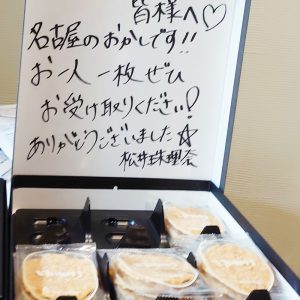 皆様へ♡
名古屋のおかしです!!
お一人一枚ぜひ
お受け取りください!
ありがとうございました☆
松井珠理奈